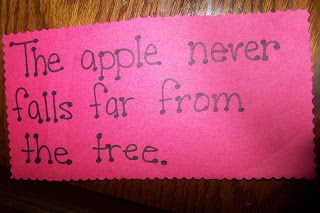 The apple never
falls far from
the tree.